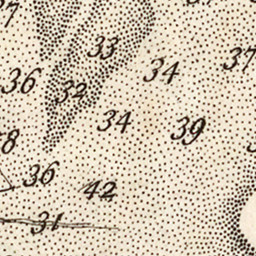 37
33
34
37
36
32
34
39
38
36
42
31